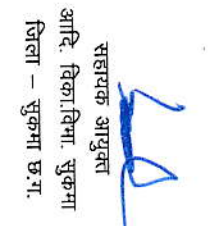 सहायक आयुक्त
आदि. विका.विभा. सुकमा
जिला – सुकमा छ.ग.